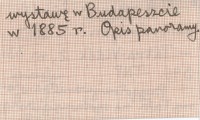 wystawę w Budapeszcie
w 1885 r. Opis panoramy.